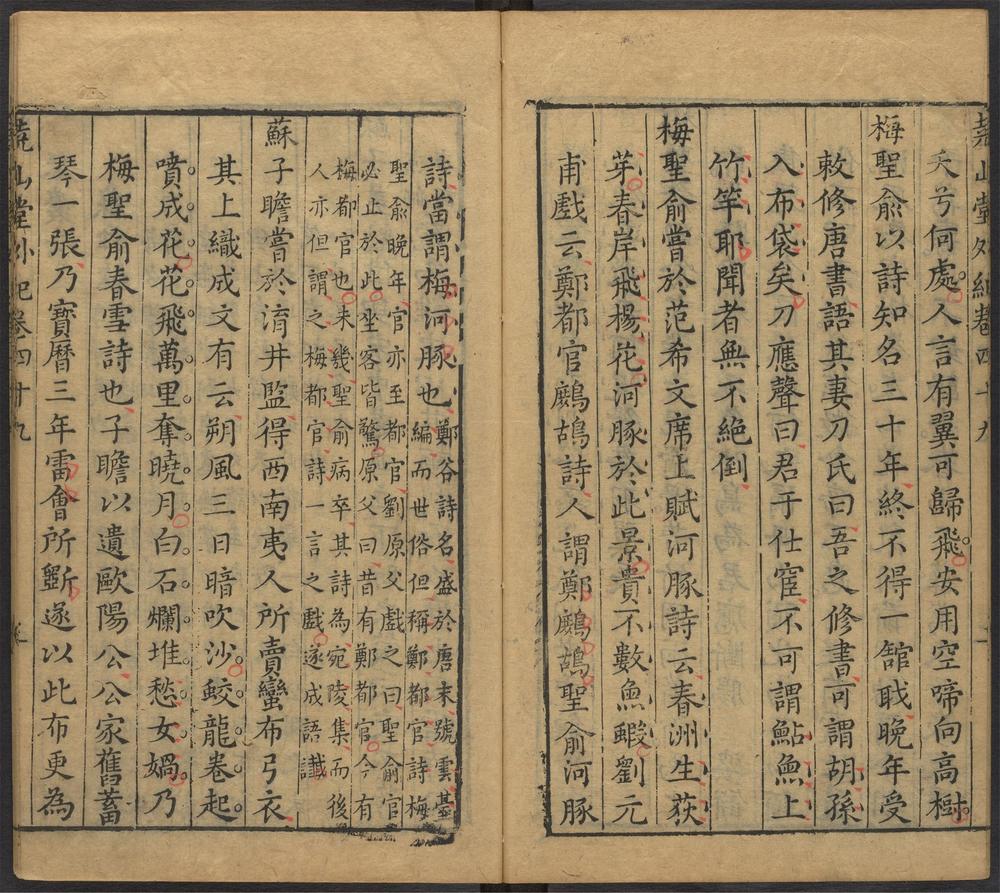 堯山堂外紀卷四十九
天兮何處人言有翼可歸飛安用空啼向高樹
梅聖俞以詩知名三十年終不得一館職晚年受
敕修唐書語其妻刀氏曰吾之修書可謂胡孫
入布袋矣刀應聲曰君于仕宦不可謂鮎魚上
竹竿耶聞者無不絕倒
梅聖俞嘗於范希文席上賦河豚詩云春洲生荻
芽春岸飛楊花河豚於此景貴不數魚鰕劉元
甫戲云鄭都官鷓鴣詩人謂鄭鷓鴣聖俞河豚
詩當謂梅河豚也鄭谷詩名盛於唐末號雲臺
編而世俗但稱鄭都官詩梅
聖俞晚年官亦至都官劉原父戲之曰聖俞官
必止於此坐客皆驚原父曰昔有鄭都官今有
梅都官也未幾聖俞病卒其詩為宛陵集而後
人亦但謂之梅都官詩一言之戲遂成語讖
蘇子瞻嘗於淯井監得西南夷人所賣蠻布弓衣
其上織成文有云朔風三日暗吹沙蛟龍卷起
噴成花花飛萬里奪曉月白石爛堆愁女媧乃
梅聖俞春雪詩也子瞻以遺歐陽公公家舊蓄
琴一張乃寶曆三年雷會所斲遂以此布更為
堯山堂外紀卷四十九